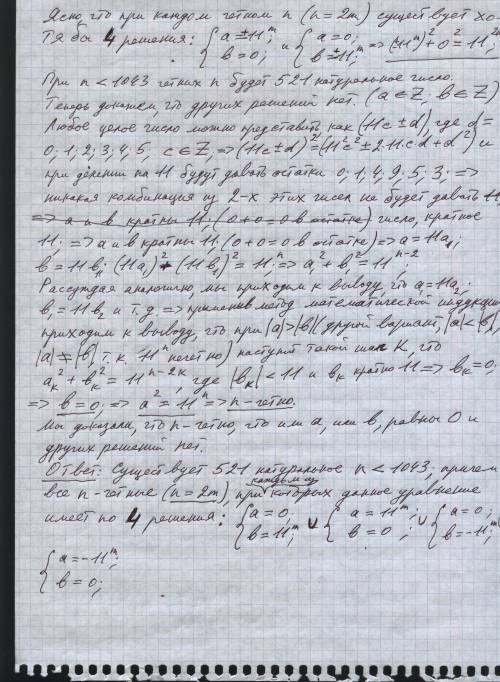 Ясно, что при каждом четном n (n=2m) существует хо-
тя бы 4 решения: { a=±11^m; b=0; и { a=0; b=±11^m; => (11^m)²+0²=11^2m
При n<1043 четных n будет 521 натуральное число.
Теперь докажем, что других решений нет. (a∈Z; b∈Z)
Любое целое число можно представить как (11c±d), где d=
0; 1; 2; 3; 4; 5; c∈Z; => (11c±d)²=(11²c²±2·11·c·d+d²) и
при делении на 11 будут давать остатки 0; 1; 4; 9; 5; 3; =>
никакая комбинация из 2-х этих чисел не будет давать 11;
=> a и b кратны 11; (0+0=0 в остатке) число, кратное
11; => a и b кратны 11; (0+0=0 в остатке) => a=11a₁;
b=11b₁; (11a₁)²+(11b₁)²=11^n => a₁²+b₁²=11^n-2
Рассуждая аналогично, мы приходим к выводу, что a₁=11a₂;
b₁=11b₂ и т.д. => применив метод математической индукции
приходим к выводу, что при |a|>|b| (другой вариант, |a|<|b|,
|a|≠|b| т.к. 11^n нечетно) наступит такой шаг K, что
a_k²+b_k²=11^n-2k, где |b_k|<11 и b_k кратно 11 => b_k=0;
=> b=0; => a²=11^n => n-четно.
Мы доказали, что n-четно, что или a, или b, равны 0 и
других решений нет.
Ответ: Существует 521 натуральное n<1043, причем
все n-четные (n=2m), при каждом из которых данное уравнение
имеет по 4 решения: { a=0; b=11^m; ∪ { a=11^m; b=0; ∪ { a=0; b=-11^m; ∪
{ a=-11^m;
b=0;